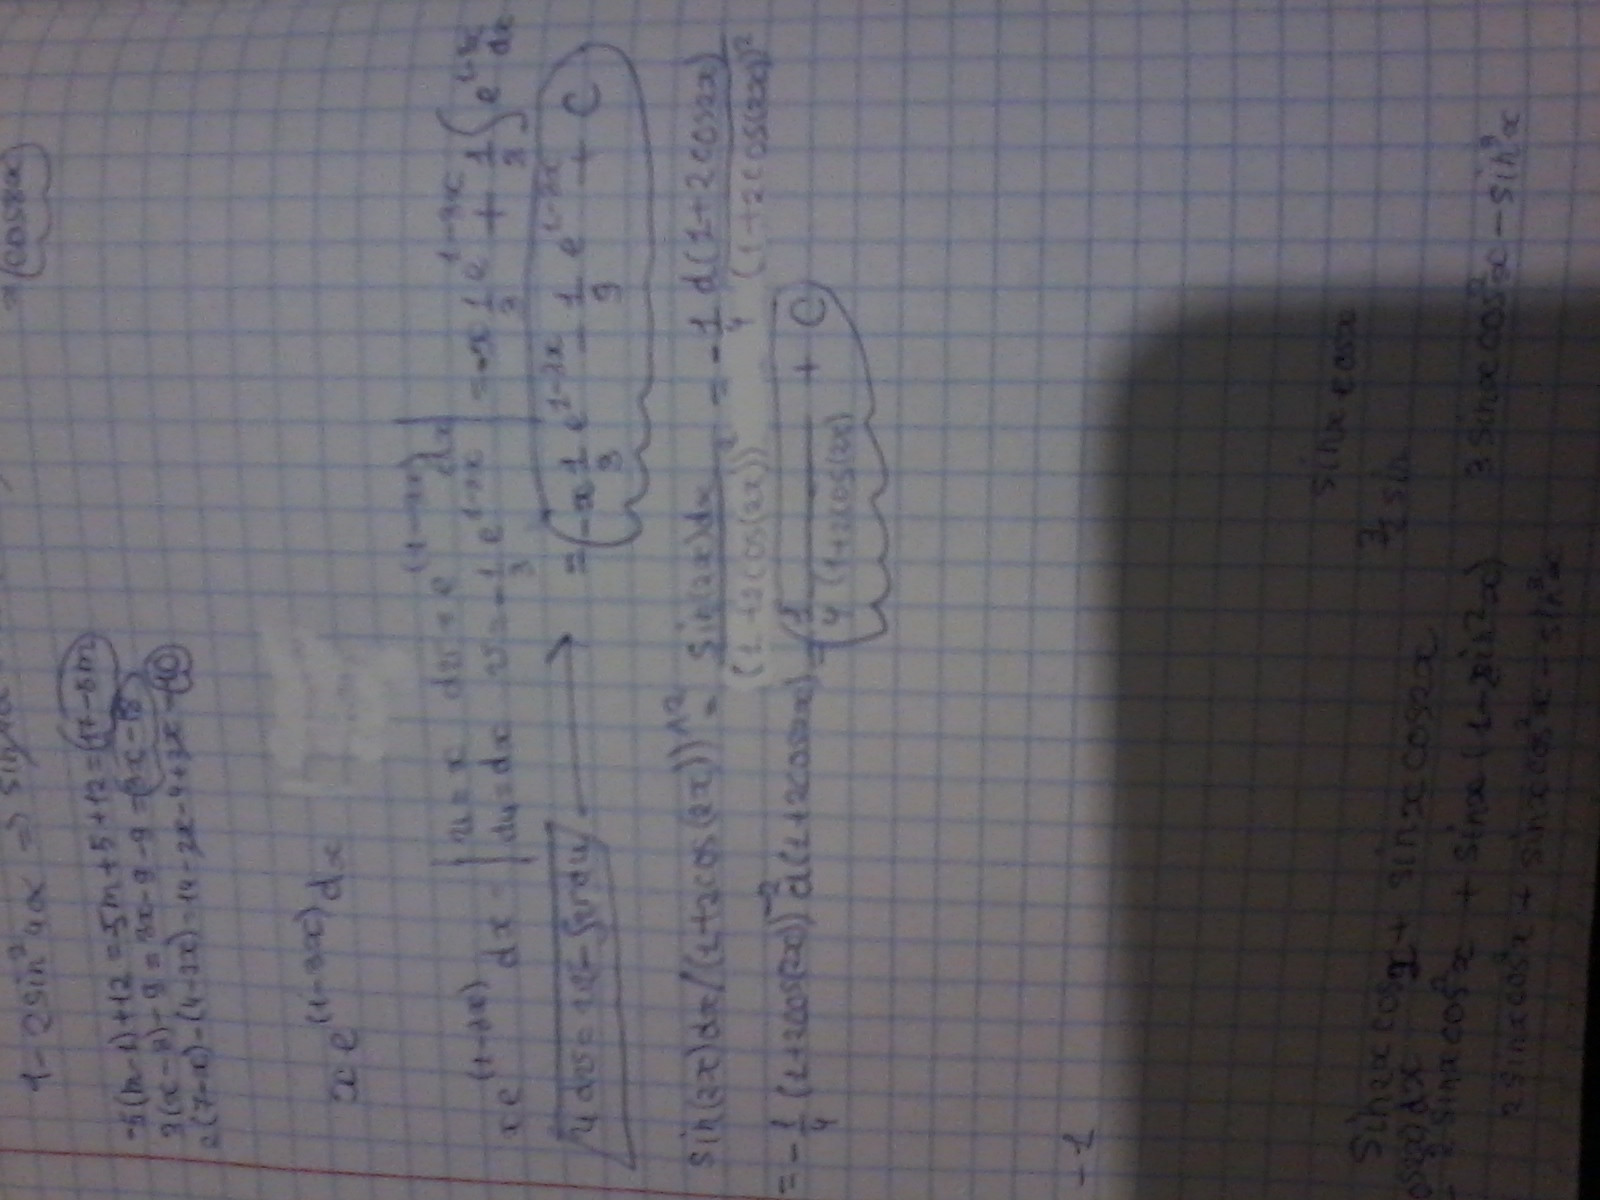 1 - 2sin²4x => sin
= cos8x
-5(m-1)+12 = -5m+5+12 = 17-5m
3(x-3)-9 = 3x-9-9 = 3x-18
2(7-x)-(4-2x) = 14-2x-4+2x = 10
x e^(1-3x) dx
x e^(1-3x) dx = | u = x dv = e^(1-3x) dx | = -x 1/3 e^(1-3x) + 1/3 ∫ e^(1-3x) dx
| du = dx v = -1/3 e^(1-3x) |
u dv = uv - ∫ v du → = -x 1/3 e^(1-3x) - 1/9 e^(1-3x) + C
sin(2x)dx/(1+2cos(2x))^2 = sin(2x)dx / (1+2cos(2x))² = -1/4 d(1+2cos2x) / (1+2cos(2x))²
= -1/4 (1+2cos(2x))^-2 d(1+2cos2x) = 1 / 4(1+2cos(2x)) + C
-1
sinx cosx
3/2 sin
sin2x cos + sinx cos2x
2 sinx cos²x + sinx (1-2sin²x) 3 sinx cos²x - sin³x
2 sinx cos²x + sinx cos²x - sin³x